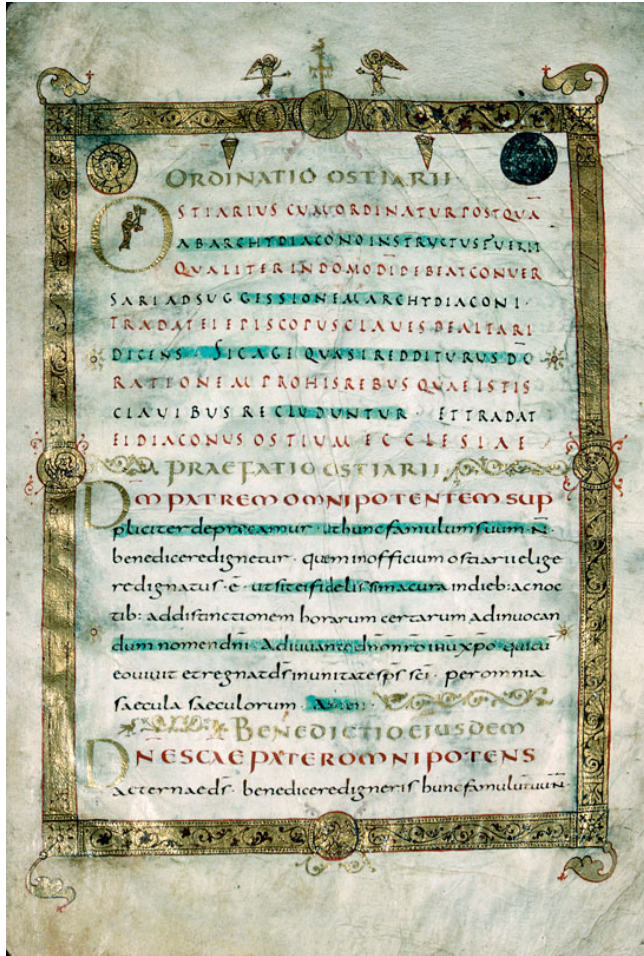 ORDINATIO OSTIARII
OSTIARIUS CUM ORDINATUR POSTQUĀ
AB ARCHYDIACONO INSTRUCTUS FUERIT
QUALITER IN DOMO DĪ DEBEAT CONVER
SARI AD SUGGESSIONEM ARCHYDIACONI ·
TRADAT EI EPISCOPUS CLAVES DE ALTARI
DICENS · SIC AGE QUASI REDDITURUS DŌ
RATIONEM PRO HIS REBUS QUAE ISTIS
CLAVIBUS RECLUDUNTUR · ET TRADAT
EI DIACONUS OSTIUM ECCLESIAE
PRAEFATIO OSTIARII
DM PATREM OMNIPOTENTEM SUP
pliciter depraecamur · ut hunc famulum suum · N̄ ·
benedicere dignetur · quem in officium ostiarii elige
re dignatus · ē · ut sit ei fidelissima cura in dieb: ac noc
tib: ad distinctionem horarum certarum ad invocan
dum nomen dn̄i · Adiuvante dn̄o nr̄o ihū xp̄o · qui cū
eo vivit et regnat ds̄ in unitate sp̄s sc̄i · per omnia
saecula saeculorum · Amen ·
BENEDICTIO EIUSDEM
DNE SCAE PATER OMNIPOTENS
aeternae ds̄ · benedicere digneris hunc famulū tuū · N̄ ·